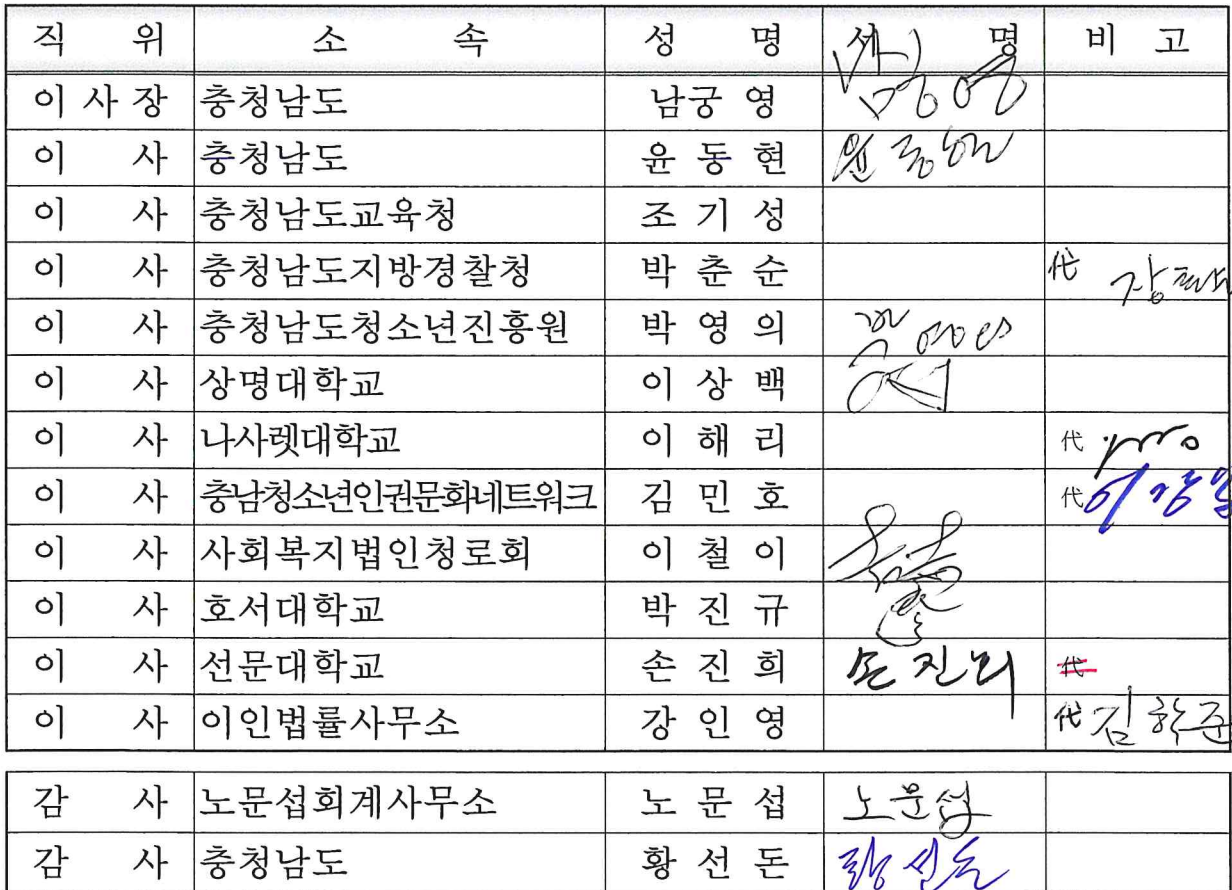 직 위 소 속 성 명 서 명 비 고
이 사 장 충청남도 남궁 영 남궁영
이 사 충청남도 윤 동 현 윤동현
이 사 충청남도교육청 조 기 성
이 사 충청남도지방경찰청 박 춘 순 代
이 사 충청남도청소년진흥원 박 영 의 박영의
이 사 상명대학교 이 상 백
이 사 나사렛대학교 이 해 리 代
이 사 충남청소년인권문화네트워크 김 민 호 代
이 사 사회복지법인청로회 이 철 이
이 사 호서대학교 박 진 규
이 사 선문대학교 손 진 희 손진희 代
이 사 이인법률사무소 강 인 영 代 김학준
감 사 노문섭회계사무소 노 문 섭 노문섭
감 사 충청남도 황 선 돈 황선돈